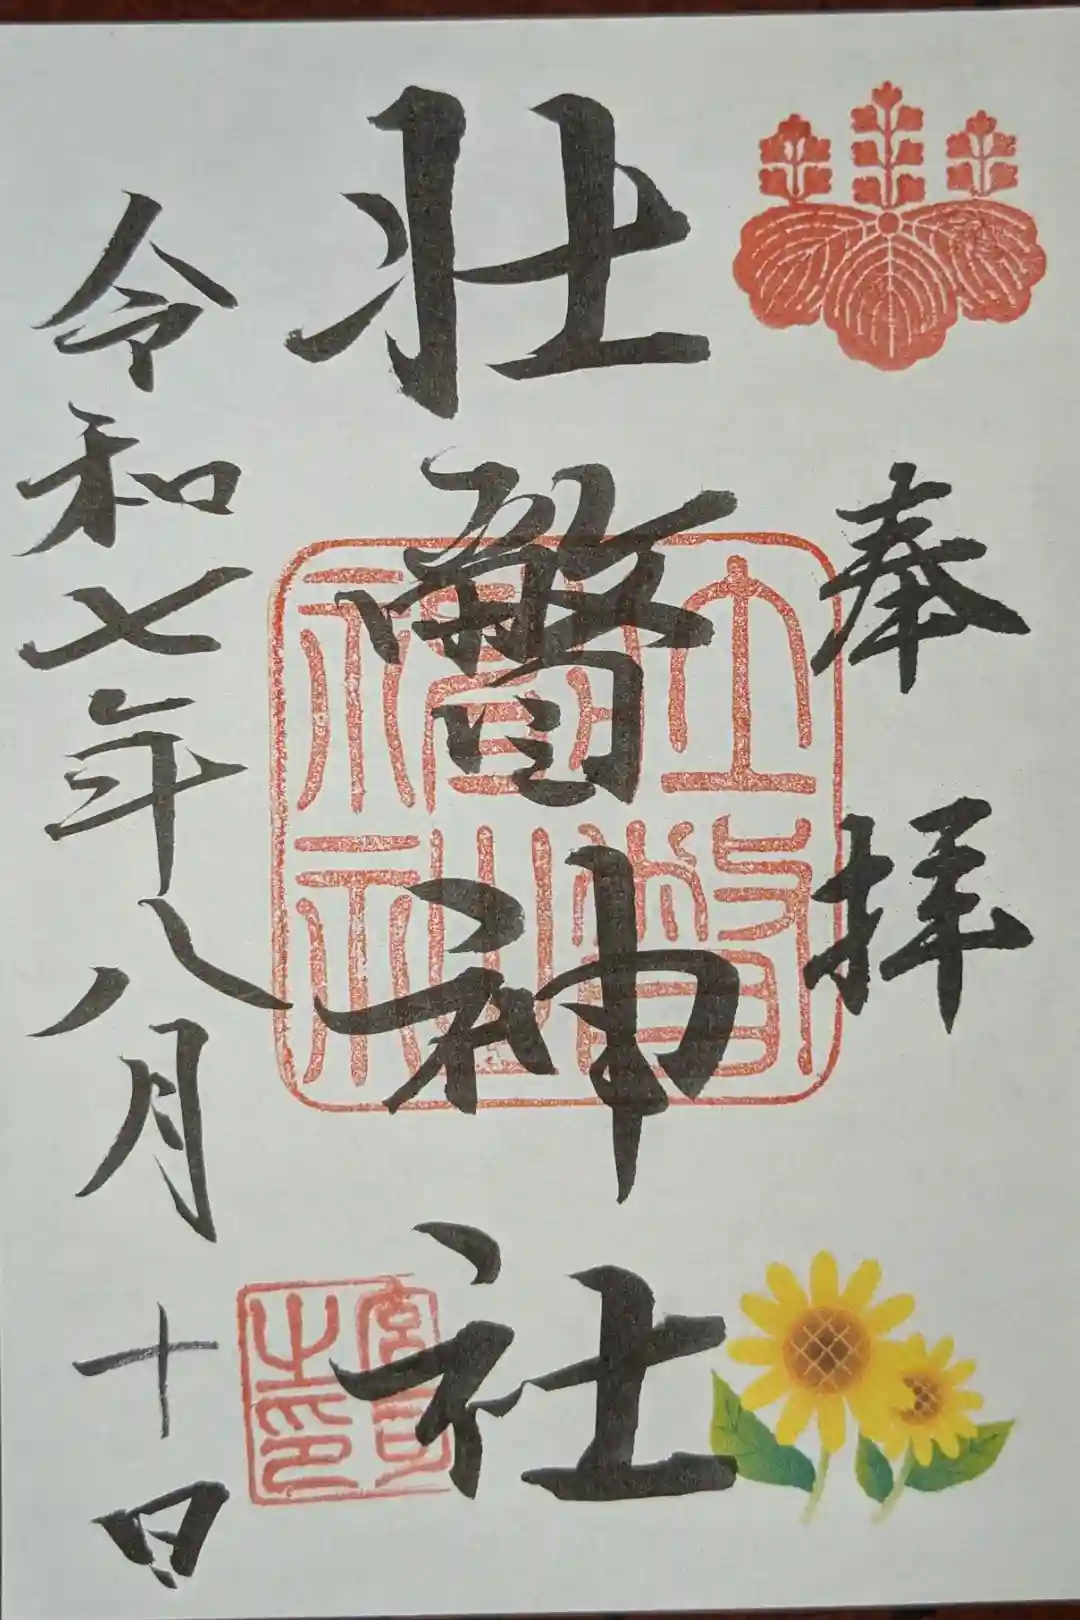 奉拝
壮瞥神社
壮瞥神社
宮司之印
令和七年八月十日